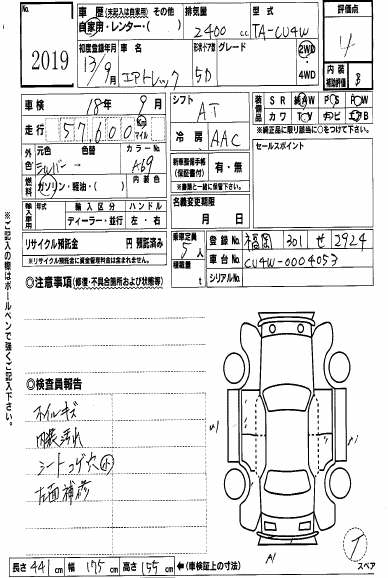 No.
2019
車歴(未記入は自家用)その他
自家用・レンター・( )
排気量
2400 cc
型式
TA-CU4W
評価点
4
初度登録年月
13/9月
車名
エアトレック
形状・ドア数
5D
グレード
2WD
・
4WD
内装
補助評価
B
車検 18年 9月
走行 57,600 Km マイル
シフト
AT
冷房
AAC
装備品
SR AW PS PW
カワ TV ナビ エアB
※純正品に限り該当に○をつけて下さい。
セールスポイント
外色
元色 色替
シルバー
カラーNo.
A69
燃料
ガソリン・軽油・( )
内装色
新車整備手帳
(保証書付)
有・無
※書類と一緒に保管して下さい。
輸入車用
輸入区分 ハンドル
ディーラー・並行 左・右
名義変更期限
月 日
リサイクル預託金 円 預託済み
※リサイクル預託金に資金管理料金は含まれません。
乗車定員
5人
積載量
t
登録No. 福岡 301 せ 2924
車台No. CU4W-0004053
シリアルNo.
◎注意事項(修復・不具合箇所および状態等)
◎検査員報告
ホイルキズ
内装汚れ
シートコゲ穴小
左面補修
A1
スペア
長さ 441cm 幅 175cm 高さ 155cm ←(車検証上の寸法)
※ご記入の際はボールペンで強くご記入下さい。